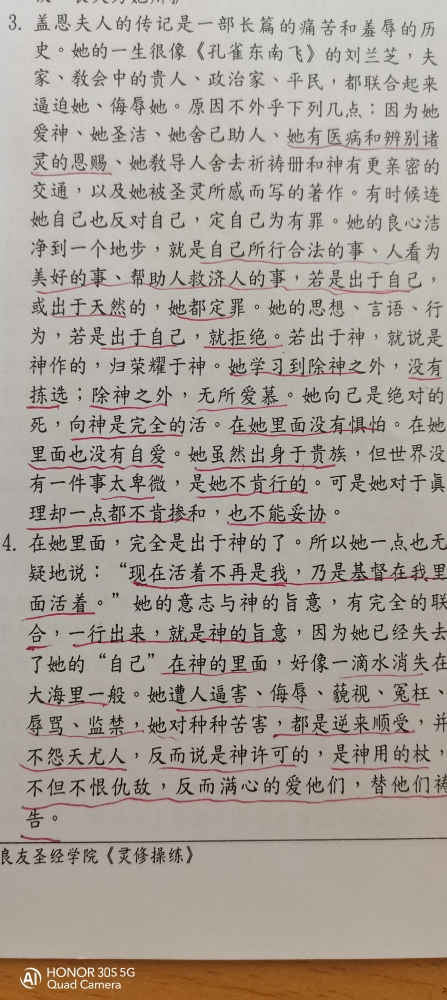 3. 盖恩夫人的传记是一部长篇的痛苦和羞辱的历
史。她的一生很像《孔雀东南飞》的刘兰芝，夫
家、教会中的贵人、政治家、平民，都联合起来
逼迫她、侮辱她。原因不外乎下列几点：因为她
爱神、她圣洁、她舍己助人、她有医病和辨别诸
灵的恩赐、她教导人舍去祈祷册和神有更亲密的
交通，以及她被圣灵所感而写的著作。有时候连
她自己也反对自己，定自己为有罪。她的良心洁
净到一个地步，就是自己所行合法的事、人看为
美好的事、帮助人救济人的事，若是出于自己，
或出于天然的，她都定罪。她的思想、言语、行
为，若是出于自己，就拒绝。若出于神，就说是
神作的，归荣耀于神。她学习到除神之外，没有
拣选；除神之外，无所爱慕。她向己是绝对的
死，向神是完全的活。在她里面没有惧怕。在她
里面也没有自爱。她虽然出身于贵族，但世界没
有一件事太卑微，是她不肯行的。可是她对于真
理却一点都不肯掺和，也不能妥协。
4. 在她里面，完全是出于神的了。所以她一点也无
疑地说：“现在活着不再是我，乃是基督在我里
面活着。”她的意志与神的旨意，有完全的联
合，一行出来，就是神的旨意，因为她已经失去
了她的“自己”在神的里面，好像一滴水消失在
大海里一般。她遭人逼害、侮辱、藐视、冤枉、
辱骂、监禁，她对种种苦害，都是逆来顺受，并
不怨天尤人，反而说是神许可的，是神用的杖，
不但不恨仇敌，反而满心的爱他们，替他们祷
告。
良友圣经学院《灵修操练》
HONOR 30S 5G
Quad Camera